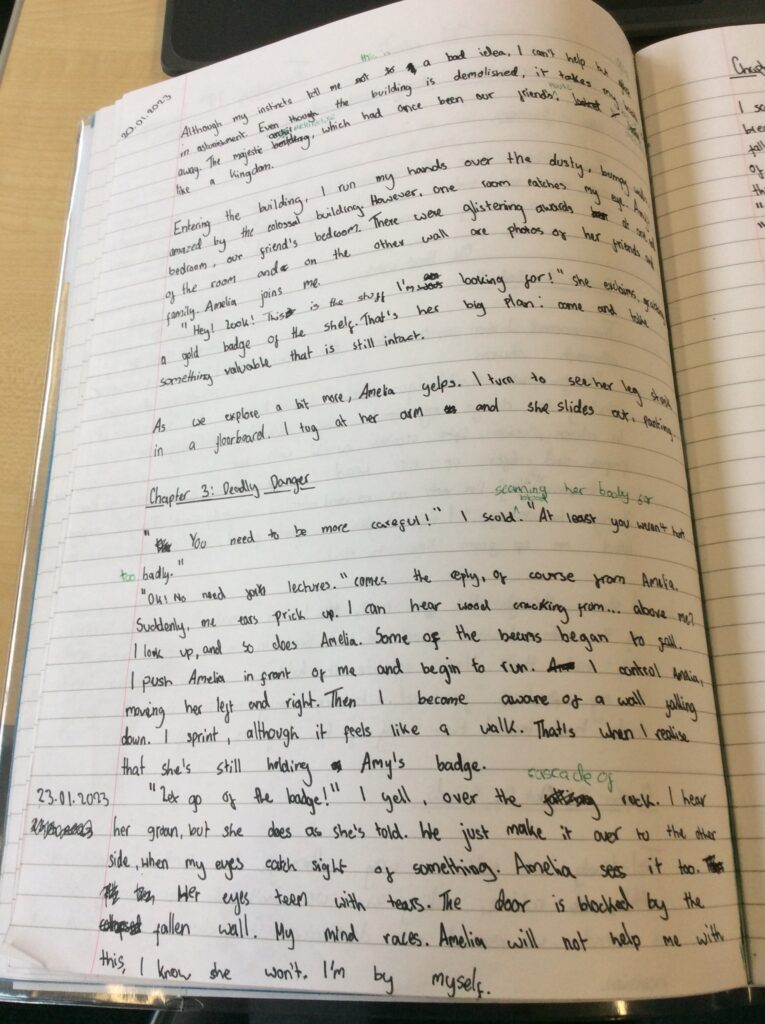 20.01.2023
this is
Although my instincts tell me not to a bad idea, I can't help but
in astonishment. Even though the building is demolished, it takes my
away. The majestic building, which had once been our friends',
like a kingdom.
Entering the building, I run my hands over the dusty, bumpy
amazed by the colossal building. However, one room catches my eye. Amy's
bedroom, our friend's bedroom. There were glistening awards at one
of the room and on the other wall are photos of her friends and
family. Amelia joins me.
"Hey! Look! This is the stuff I'm looking for!" she exclaims,
a gold badge of the shelf. That's her big plan: come and take
something valuable that is still intact.
As we explore a bit more, Amelia yelps. I turn to see her leg stuck
in a floorboard. I tug at her arm and she slides out, panting.
Chapter 3: Deadly Danger
scanning her body for
" You need to be more careful!" I scold. "At least you weren't hurt
too badly."
"OK! No need for lectures." comes the reply, of course from Amelia.
Suddenly, me ears prick up. I can hear wood cracking from... above me?
I look up, and so does Amelia. Some of the beams began to fall.
I push Amelia in front of me and begin to run. I control Amelia,
moving her left and right. Then I become aware of a wall falling
down. I sprint, although it feels like a walk. That's when I realise
that she's still holding Amy's badge.
cascade of
23.01.2023 "Let go of the badge!" I yell, over the rock. I hear
her groan, but she does as she's told. We just make it over to the other
side, when my eyes catch sight of something. Amelia sees it too.
Her eyes teem with tears. The door is blocked by the
fallen wall. My mind races. Amelia will not help me with
this, I know she won't. I'm by myself.